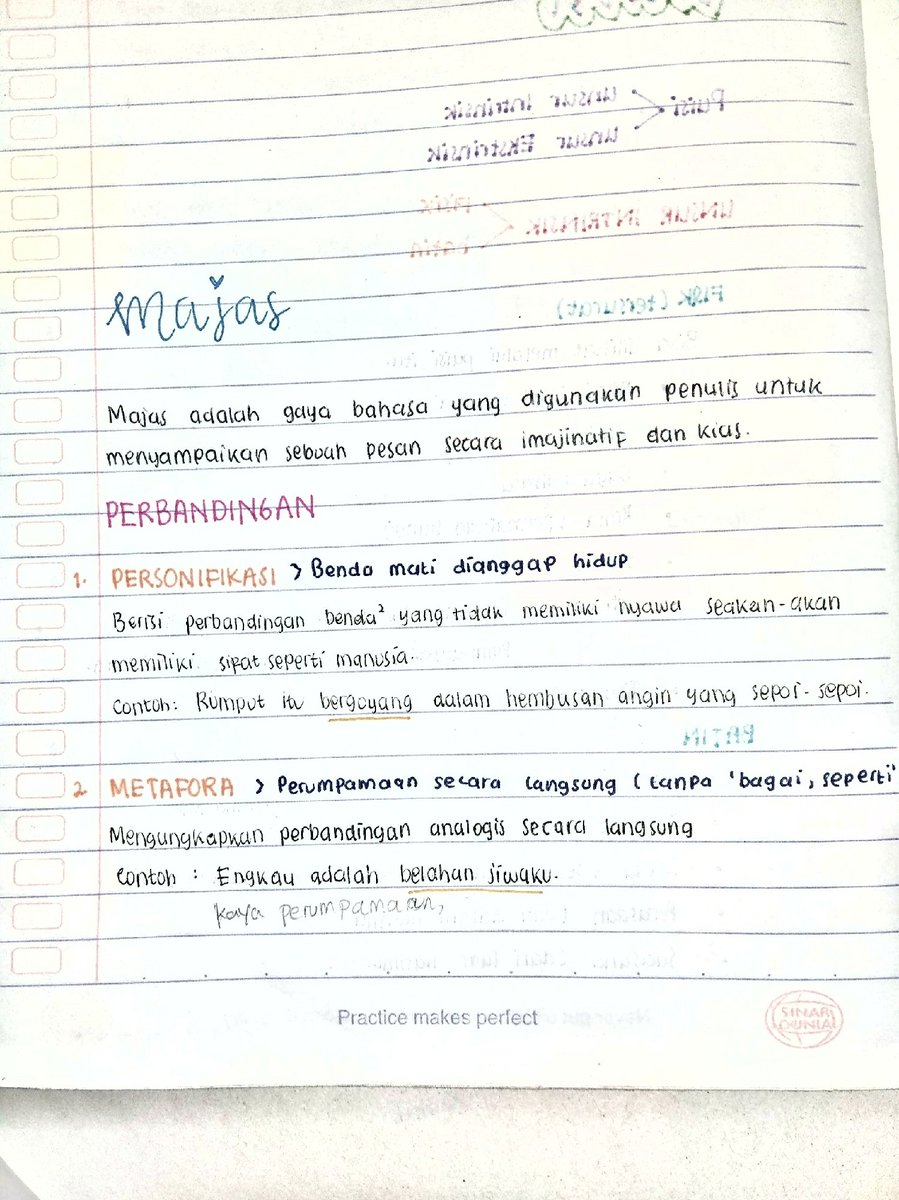 Majas
Majas adalah gaya bahasa yang digunakan penulis untuk
menyampaikan sebuah pesan secara imajinatif dan kias.
PERBANDINGAN
1. PERSONIFIKASI > Benda mati dianggap hidup
Berisi perbandingan benda² yang tidak memiliki nyawa seakan-akan
memiliki sifat seperti manusia.
Contoh: Rumput itu bergoyang dalam hembusan angin yang sepoi-sepoi.
2. METAFORA > Perumpamaan secara langsung (tanpa 'bagai, seperti'
Mengungkapkan perbandingan analogis secara langsung
Contoh : Engkau adalah belahan jiwaku.
kaya perumpamaan,
Practice makes perfect
SINAR
DUNIA